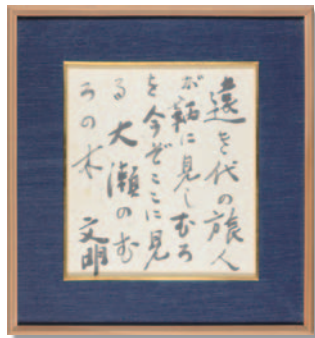 遠き代の旅人
が鞆に見しむろ
を今ぞここに見
る大瀬のむ
ろの木 文明